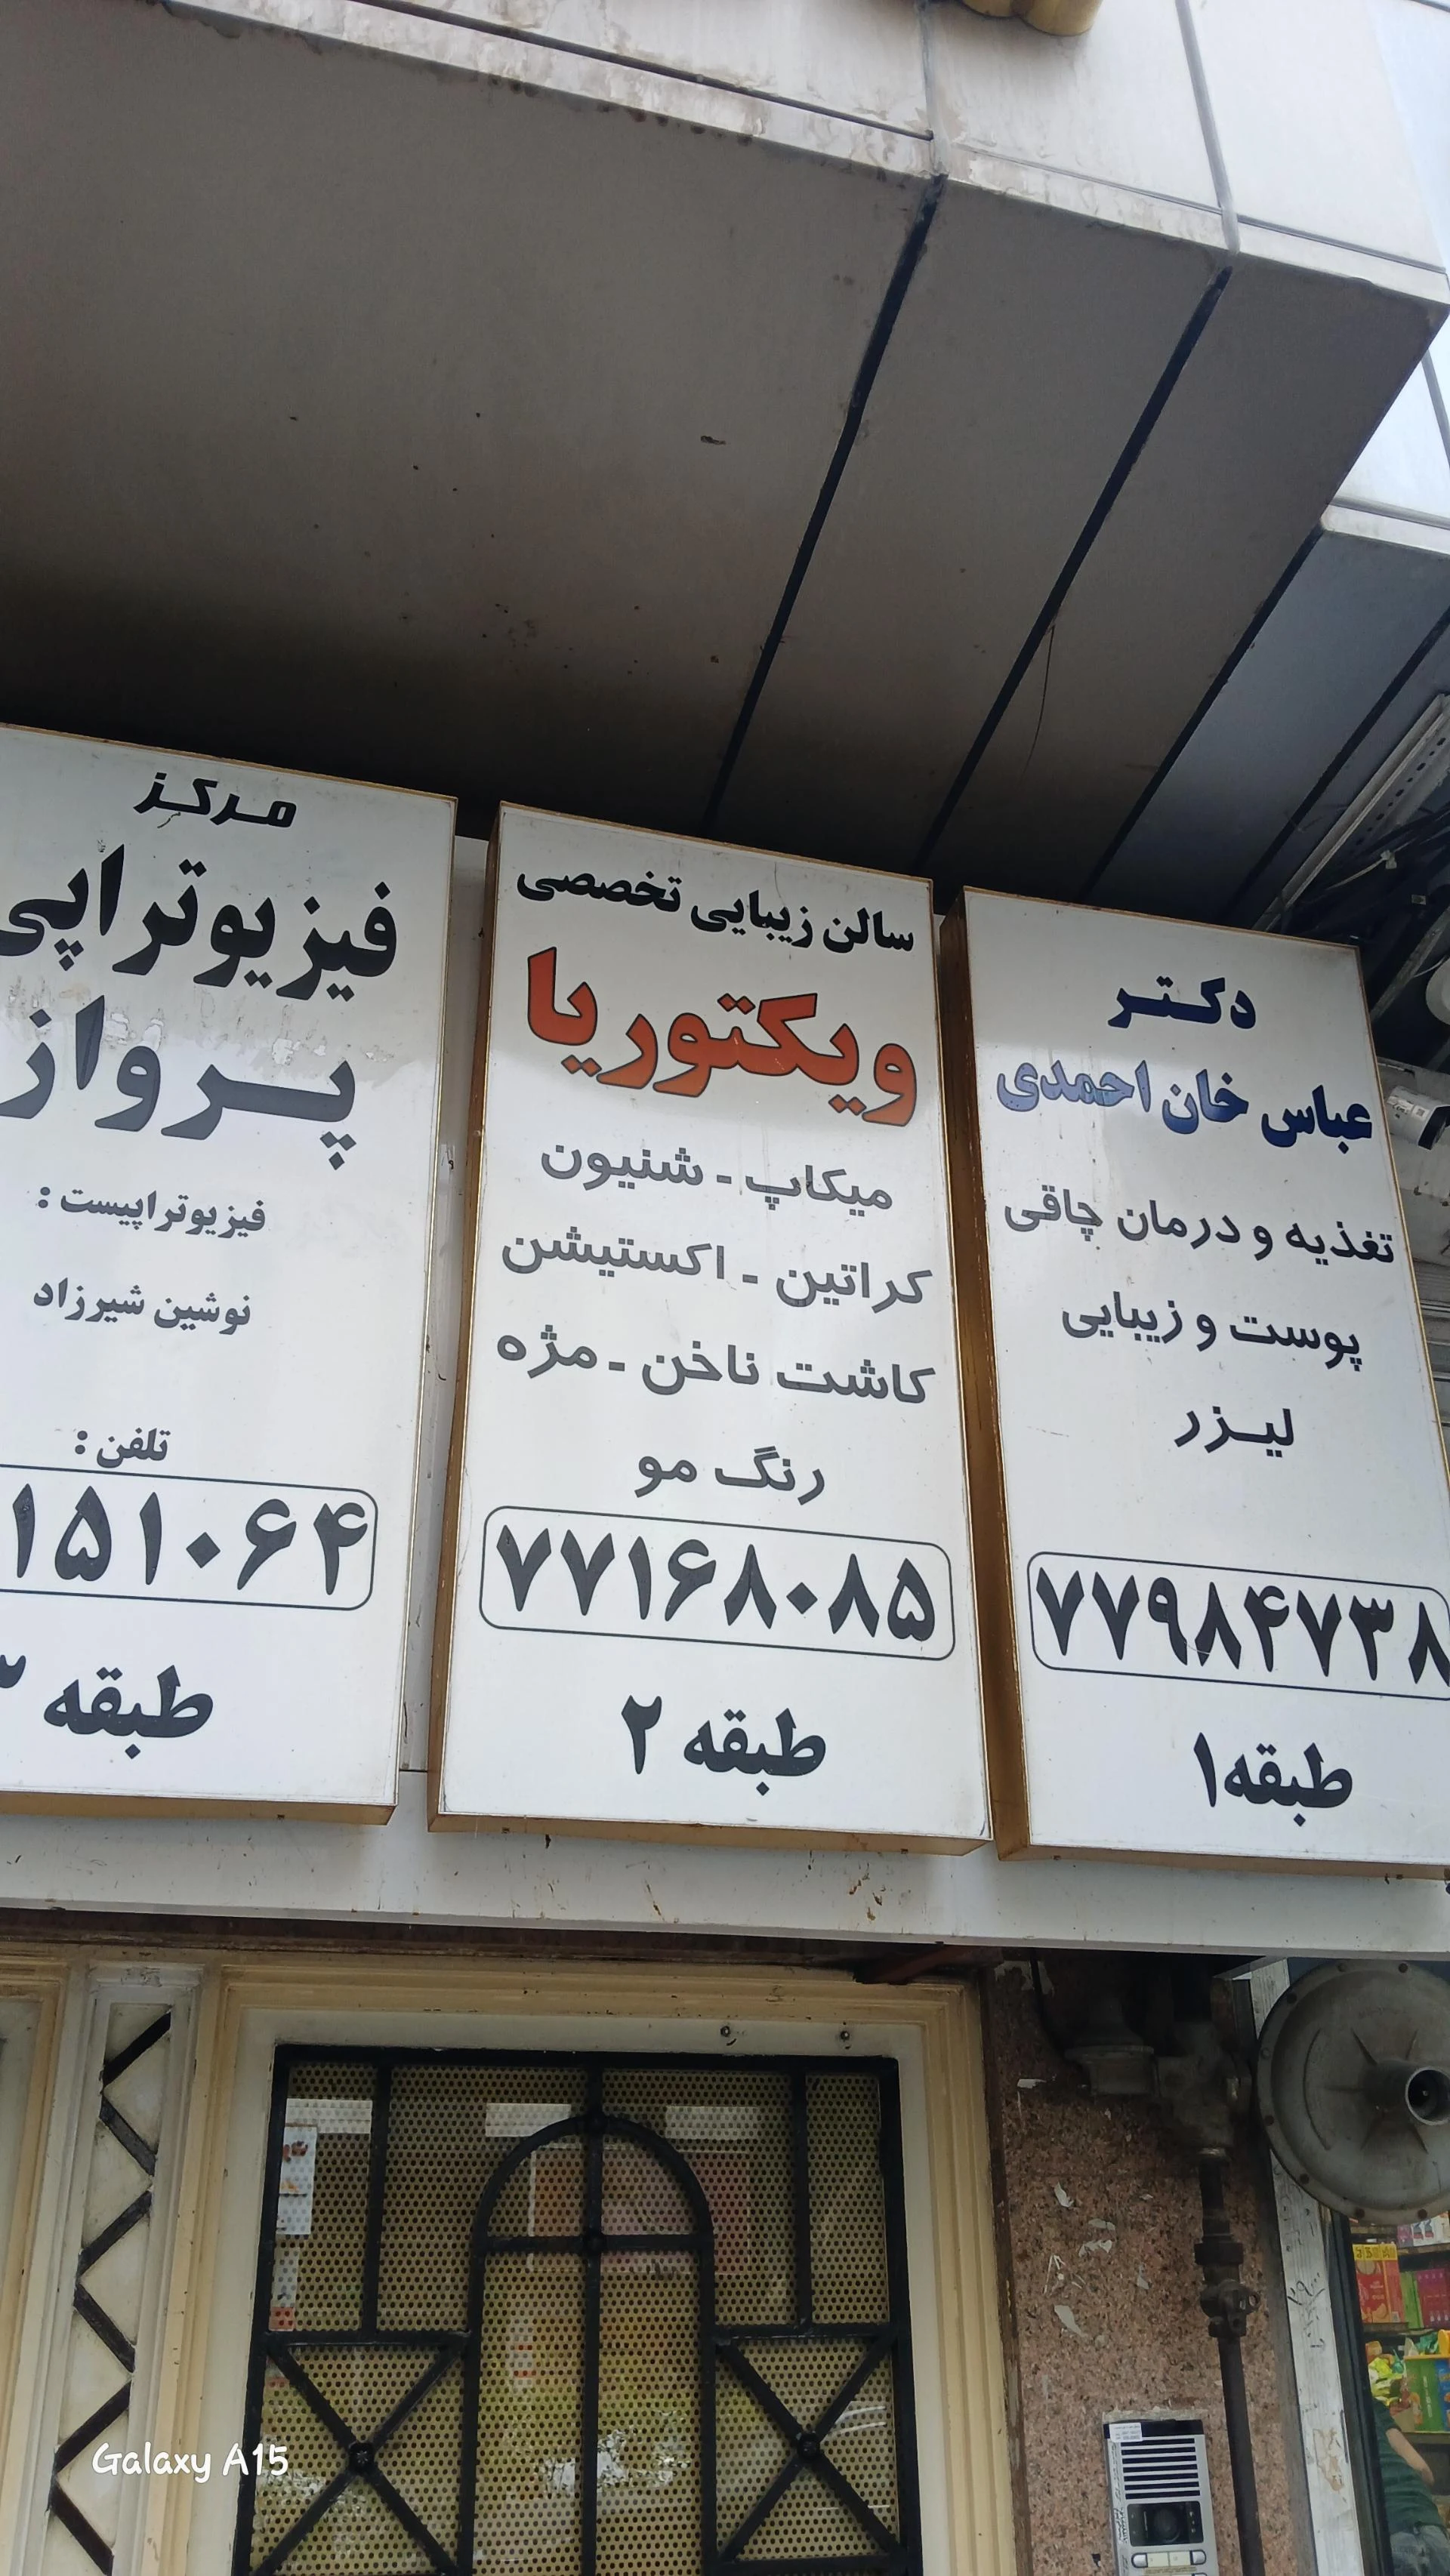 دکتر
عباس خان احمدی
تغذیه و درمان چاقی
پوست و زیبایی
لیزر
۷۷۹۸۴۷۳۸
طبقه ۱
سالن زیبایی تخصصی
ویکتوریا
میکاپ - شنیون
کراتین - اکستیشن
کاشت ناخن - مژه
رنگ مو
۷۷۱۶۸۰۸۵
طبقه ۲
مرکز
فیزیوتراپی
پرواز
فیزیوتراپیست :
نوشین شیرزاد
تلفن :
۱۵۱۰۶۴
طبقه ۳
Galaxy A15